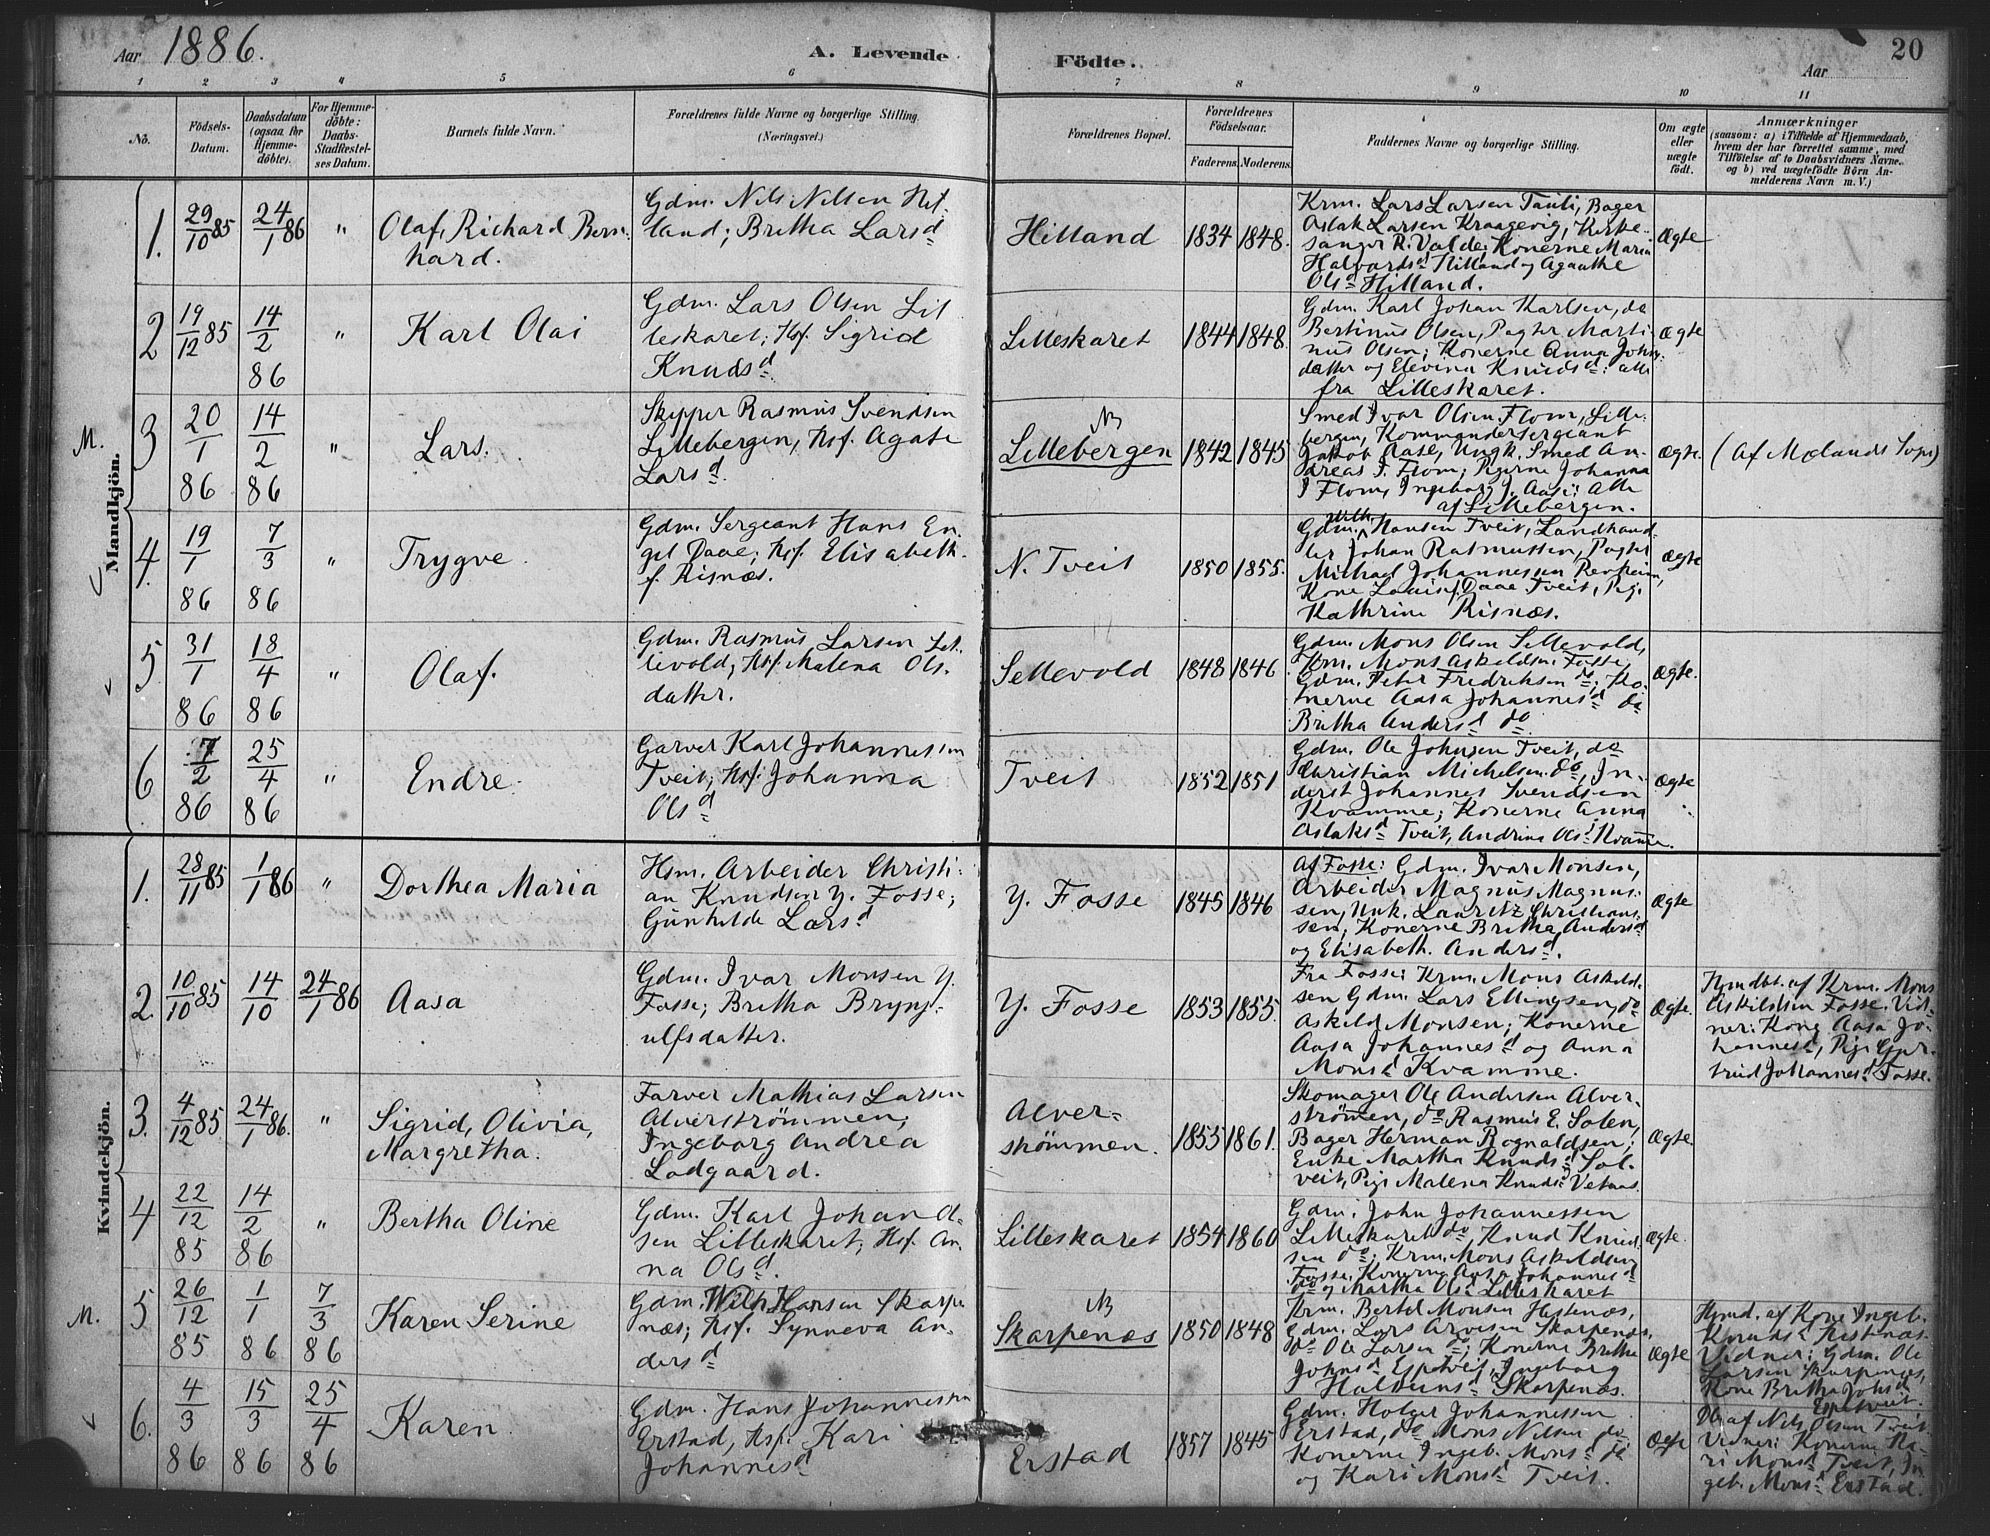 Aar 1886. A. Levende Födte. Aar 20
1 2 3 4 5 6 7 8 9 10 11
No.
Födsels-
Datum.
Daabsdatum
(ogsaa for
Hjemme-
döbte).
For Hjemme-
döbte:
Daabs-
Stadfæstel-
ses Datum.
Barnets fulde Navn.
Forældrenes fulde Navne og borgerlige Stilling.
(Næringsvei.)
Forældrenes Bopæl.
Forældrenes
Födselsaar.
Faderens. Moderens.
Faddernes Navne og borgerlige Stilling.
Om ægte
eller
uægte
födt.
Anmærkninger
(saasom: a) i Tilfælde af Hjemmedaab,
hvem der har forrettet samme, med
Tilföielse af to Daabsvidners Navne.
og b) ved uægtefödte Börn An-
melderens Navn m. V.)
Mandkjön.
1. 29/10 85 24/1 86 "
Olaf, Richard Bern-
hard.
Gdm. Nils Nilsen Hil-
land; Britha Larsd
Hilland 1834 1848.
Krm. Lars Larsen Tauli, Bager
Aslak Larsen Kraagevig, Kirke-
sanger R. Valde; Konerne Maria
Halvardsd Hilland og Agathe
Olsd Hilland.
Ægte
2 19/12 85 14/2 86 "
Karl Olai
Gdm. Lars Olsen Lil
leskaret; Hsf. Sigrid
Knudsd
Lilleskaret 1844 1848.
Gdm. Karl Johan Karlsen, do
Bertinus Olsen, Pagter Marti-
nus Olsen; Konerne Anna Johns-
datter og Elevina Knudsd: alle
fra Lilleskaret.
Ægte
M.
3 20/1 86 14/2 86 "
Lars.
Skipper Rasmus Svendsen
Lillebergen, Hsf. Agate
Larsd.
NB
Lillebergen 1842 1845
Smed Ivar Olsen Flom, Lille-
bergen, Kommandersergeant
Jakob Aase, Ungk. Smed An-
dreas I. Flom; Pigerne Johanna
I Flom, Ingeborg J. Aase: Alle
af Lillebergen.
Ægte. (Af Mælands Sogn)
4. 19/1 86 7/3 86 "
Trygve.
Gdm. Sergeant Hans En-
gel Daae; Hsf. Elisabeth
f. Risnæs.
N. Tveit 1850 1855.
Gdm. Wilh. Hansen Tveit, Landhand-
ler Johan Rasmussen, Pagter
Michael Johannessen
Kone Louise f. Daae Tveit, Pig.
Kathrine Risnæs.
Ægte
5 31/1 86 18/4 86 "
Olaf.
Gdm. Rasmus Larsen Sel-
levold; Hsf. Malena Ols-
datter.
Sellevold 1848 1846
Gdm. Mons Olsen Sellevold,
Krm. Mons Askeldsen Fosse,
Gdm. Peter Fredriksen do; Ko-
nerne Aasa Johannesd do
Britha Andersd do.
Ægte.
6 7/2 86 25/4 86 "
Endre.
Garver Karl Johannessen
Tveit; Hsf. Johanna
Olsd
Tveit 1852 1851
Gdm. Ole Johnsen Tveit, do
Christian Michelsen do, In-
derst Johannes Svendsen
Kvamme; Konerne Anna
Aslaksd Tveit, Andrine Olsd Kvamme.
Ægte
Kvindekjön.
1. 28/11 85 1/1 86 "
Dorthea Maria
Hsm. Arbeider Christi-
an Knudsen Y. Fosse;
Gunhilde Larsd
Y. Fosse 1845 1846
Af Fosse: Gdm. Ivar Monsen,
Arbeider Magnus Magnus-
sen, Unk. Lauritz Christians-
sen, Konerne Britha Andersd
og Elisabeth. Andersd.
Ægte
2. 10/10 85 14/10 24/1 86
Aasa
Gdm. Ivar Monsen Y.
Fosse; Britha Brynj-
ulfsdatter.
Y. Fosse 1853 1855.
Fra Fosse: Krm. Mons Askeld-
sen Gdm. Lars Ellingsen, do
Askeld Monsen; Konerne
Aasa Johannesd og Anna
Monsd Kvamme.
Ægte.
Hjmdbt. af Krm. Mons
Askildsen Fosse. Vid-
ner: Kone Aasa Jo-
hannesd, Pige Gjer-
trud Johannesd Fosse.
3. 4/12 85 24/1 86. "
Sigrid, Olivia,
Margretha.
Farver Mathias Larsen
Alverströmmen;
Ingeborg Andrea
Lodgaard.
Alver-
strömmen. 1855 1861.
Skomager Ole Andersen Alver-
strömen, do Rasmus E. Solen,
Bager Herman Rognaldsen;
Enke Martha Knudsd Sol-
veit, Pige Malena Knudsd
Ægte
4 22/12 85 14/2 86 "
Bertha Oline
Gdm. Karl Johan Ol-
sen Lilleskaret; Hsf. An-
na Olsd.
Lilleskaret 1854 1860
Gdm. John Johannessen
Lilleskaret do, Knud Knud-
sen do; Krm. Mons Askeldsen
Fosse, Konerne Aasa Johannesd
do og Martha Olsd Lilleskaret
Ægte.
M.
5 26/12 85 1/1 86 7/3 86
Karen Serine
Gdm. Wilh Hansen Skarpe-
næs; Hsf. Synneva An-
dersd
NB
Skarpenæs 1850 1848
Krm. Bertel Monsen Hestenæs,
Gdm. Lars Arvesen Skarpenæs,
do Ole Larsen do; Konerne Britha
Johnsd Espetveit, Ingeborg
Skarpenæs.
Ægte
Hjmd. af Kone Ingeb.
Knudsd Hestenæs.
Vidner: Gdm. Ole
Larsen Skarpenæs,
Kone Britha Johsd
Espetveit.
6. 4/3 86 15/3 86 25/4 86
Karen.
Gdm. Hans Johannessen
Erstad, Hsf. Kari
Johannesd
Erstad 1857 1845
Gdm. Holger Johannessen
Erstad, do Mons Nilsen do
Konerne Ingeb. Monsd do
og Kari Monsd Tveit.
Ægte
Db. af Nils Olsen Tveit
Vidner: Konerne Ka-
ri Monsd Tveit, In
geb. Monsd Erstad.